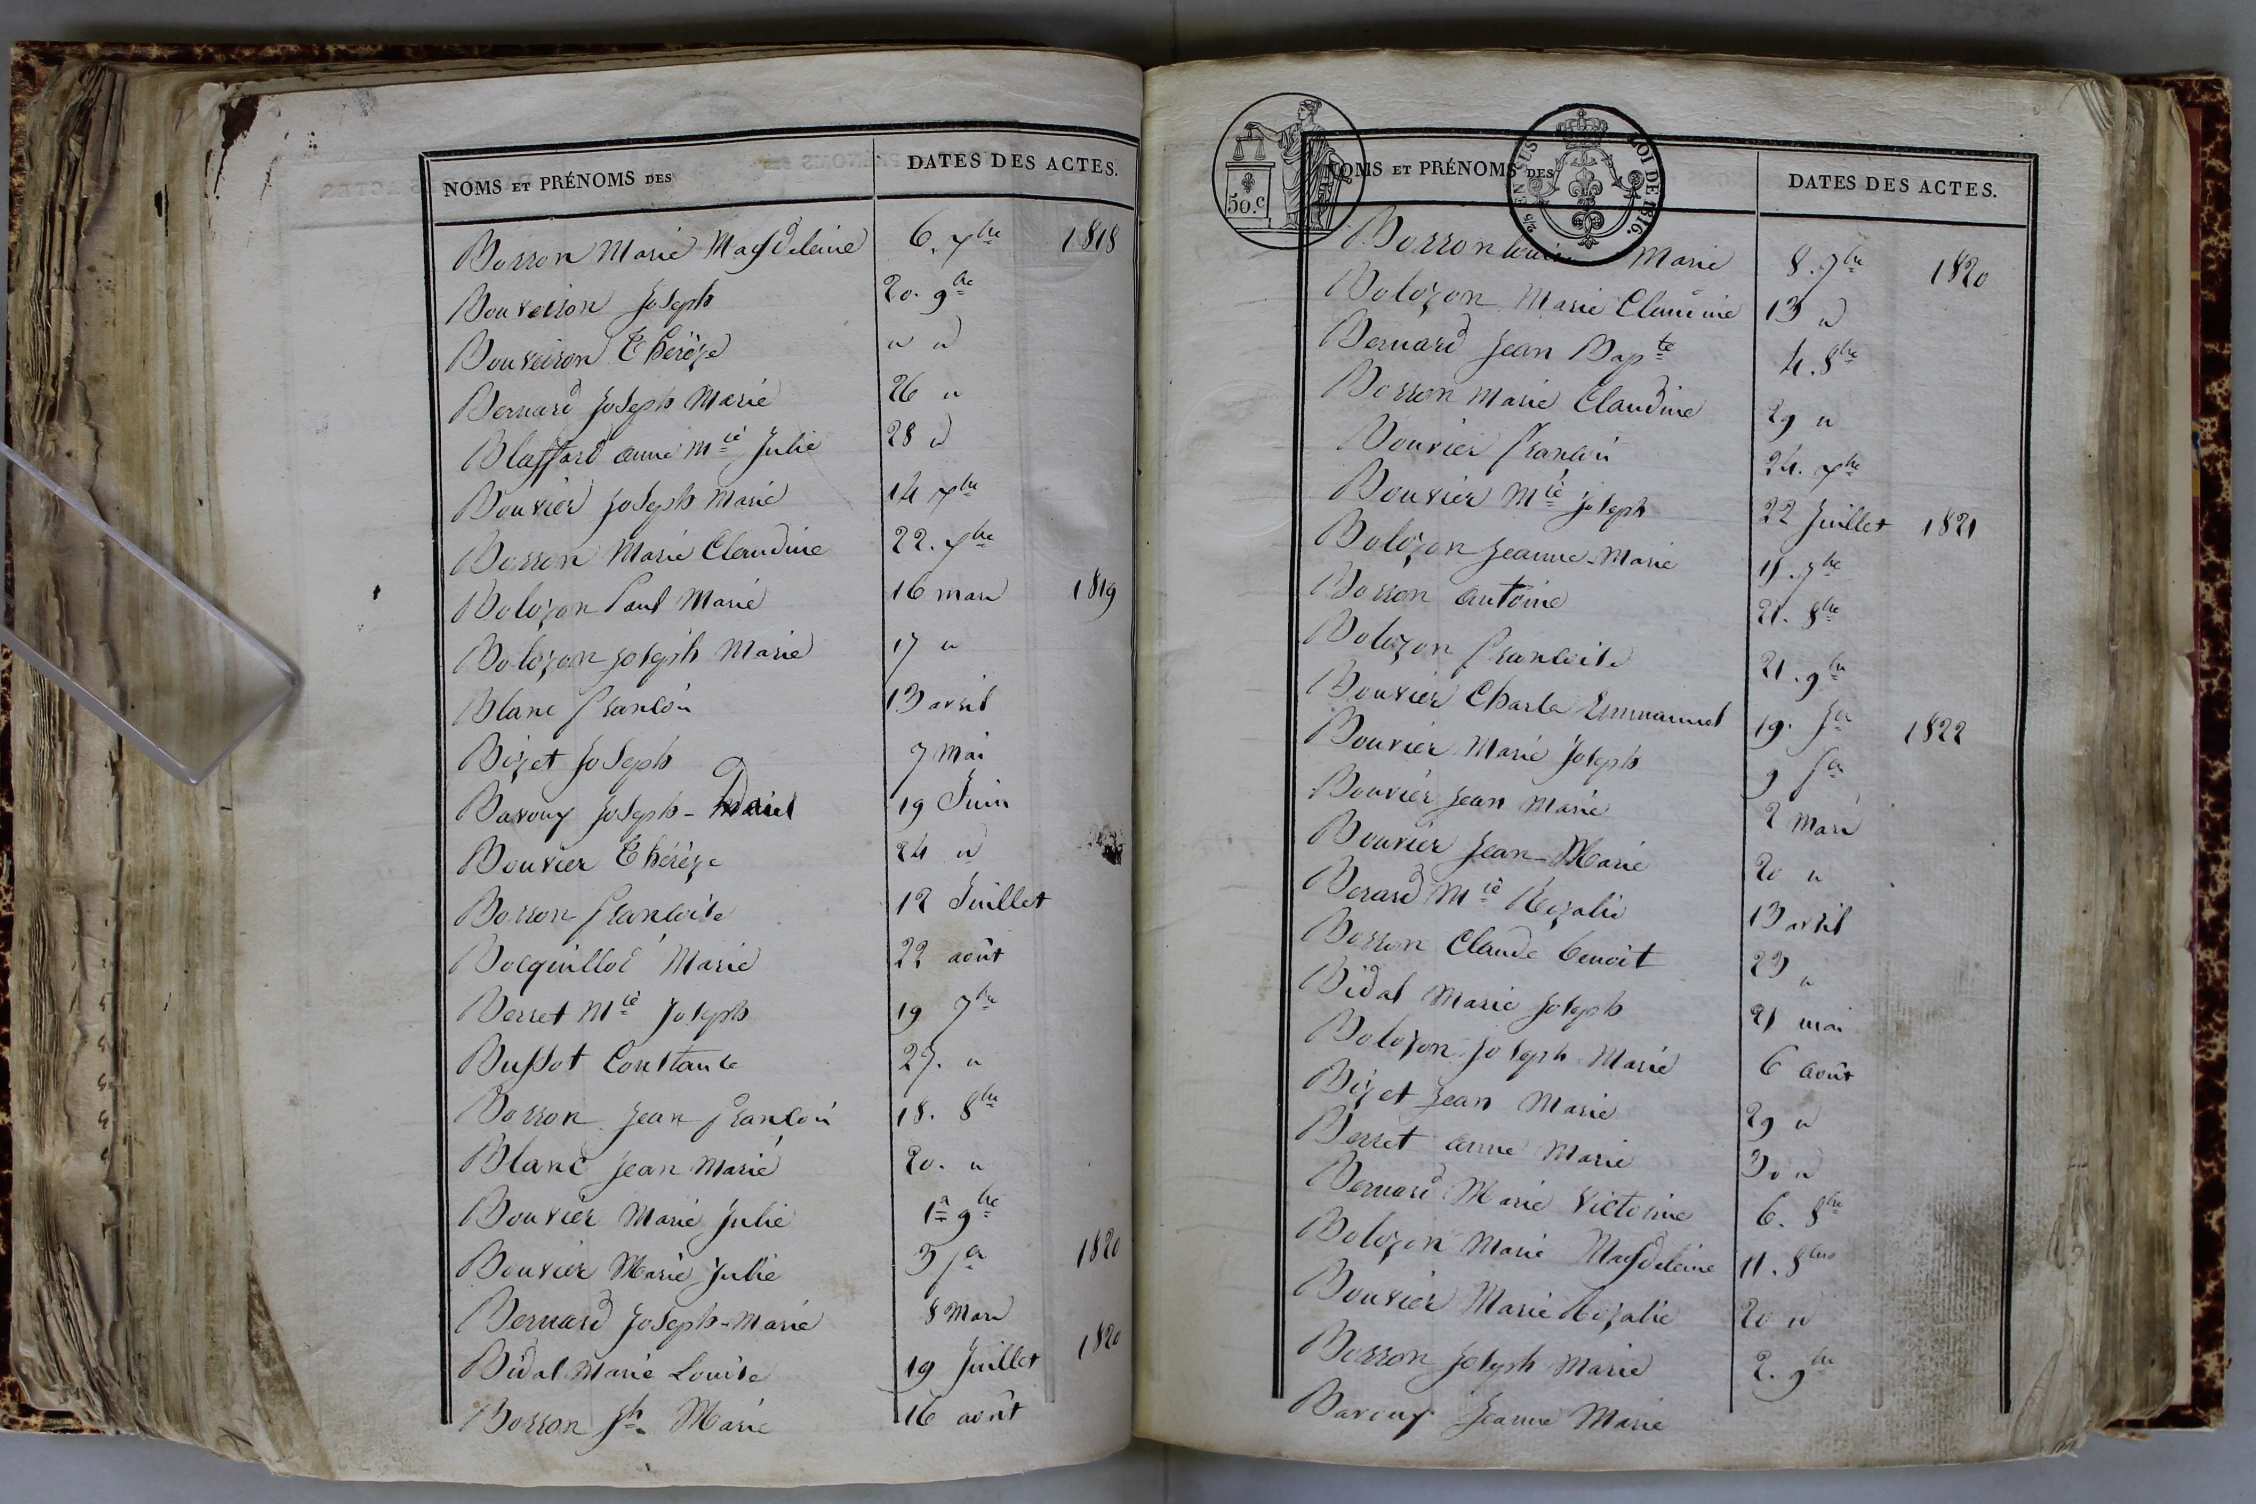 NOMS ET PRÉNOMS DES DATES DES ACTES.
Borron Marie Magdeleine 6. 7bre 1818
Bouveiron Joseph 20. 9bre
Bouveiron Thérèze " "
Bernard Joseph Marie 26 "
Blaffard anne Mie Julie 28 "
Bouvier Joseph Marie 14 Xbre
Borron Marie Claudine 22. Xbre
Bolozon Paul Marie 16 mars 1819
Bolozon Joseph Marie 17 "
Blanc François 13 avril
Bizet Joseph 7 Mai
Bavoux Joseph - Daniel 19 Juin
Bouvier Thérèze 24 "
Borron Françoise 12 Juillet
Bocquillod Marie 22 août
Berret Mie Joseph 19 7bre
Bussot Constance 27. "
Borron Jean François 18. 8bre
Blanc Jean Marie 20. "
Bouvier Marie Julie 1er 9bre
Bouvier Marie Julie 3 Jer 1820
Bernard Joseph-Marie 8 Mars
Bidal Marie Louise 19 Juillet 1820
Borron Jh Marie 16 août
50.c
EN SUS
LOI DE 1816.
NOMS ET PRÉNOMS DES DATES DES ACTES.
Borron Marie 8. 7bre 1820
Bolozon Marie Claudine 13 "
Bernard Jean Bapte 4. 8bre
Borron Marie Claudine 29 "
Bouvier François 24. Xbre
Bouvier Mie Joseph 22 Juillet 1821
Bolozon Jeanne-Marie 11. 7bre
Borron antoine 21. 8bre
Bolozon Françoise 21. 9bre
Bouvier Charles Emmanuel 19. Jer 1822
Bouvier Marie Joseph 9 fer
Bouvier Jean Marie 2 Mars
Bouvier Jean-Marie 20 "
Berard Mie Rozalie 13 avril
Borron Claude benoit 23 "
Bidal Marie Joseph 21 mai
Bolozon Joseph Marie 6 août
Bizet Jean Marie 29 "
Berret anne Marie 30 "
Bernard Marie Victoine 6. 8bre
Bolozon Marie Magdeleine 11. 8bre
Bouvier Marie Rozalie 20 "
Borron Joseph Marie 2. 9bre
Bavoux Jeanne Marie